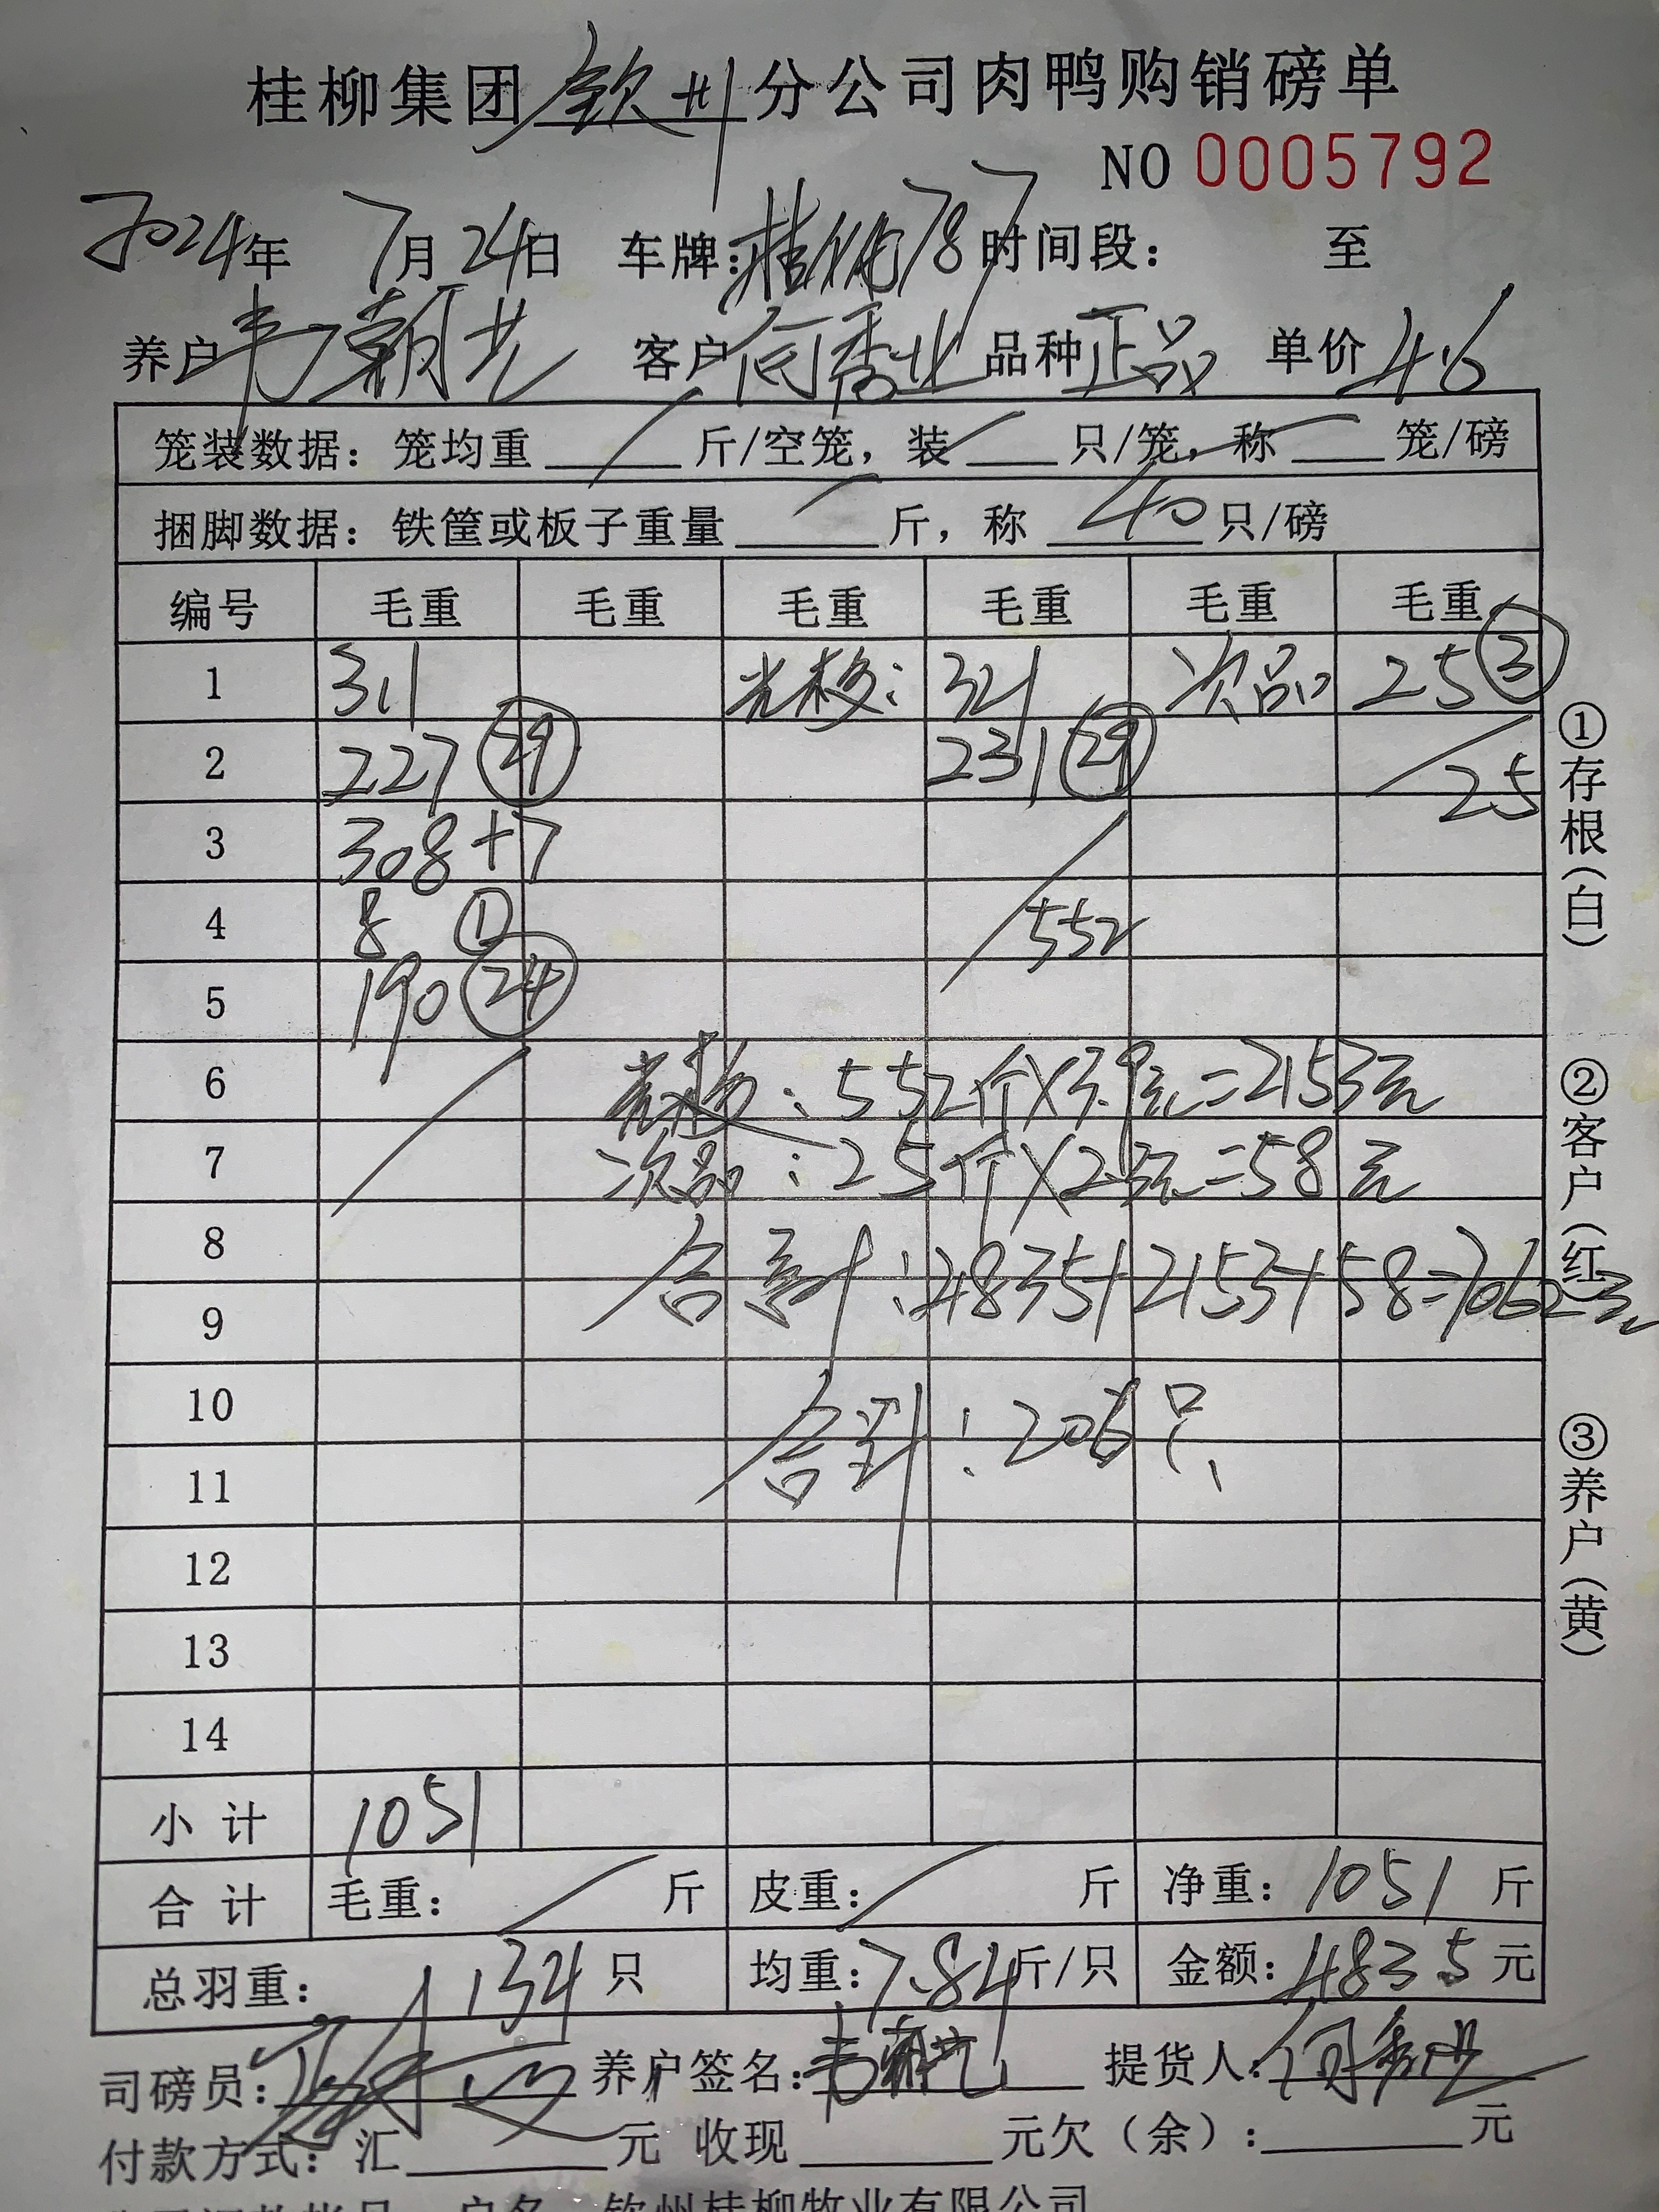 桂柳集团钦州分公司肉鸭购销磅单
NO 0005792
2024年 7月24日 车牌:桂柳787 时间段: 至
养户 韦朝艺 客户 何秀业 品种 正品 单价 4.6
笼装数据: 笼均重 斤/空笼, 装 只/笼, 称 笼/磅
捆脚数据: 铁筐或板子重量 斤, 称 40 只/磅
编号 毛重 毛重 毛重 毛重 毛重 毛重
1 311 321 次品 25 ③
2 227 ㉙ 231 ㉙ 25
3 308+7
4 8 ① 552
5 190 ㉔
6 :552斤×3.9元=2153元
7 次品:25斤×2.3元=58元
8 合计:4835+2153+58=7062元
9
10 合计:206只
11
12
13
14
小计 1051
合计 毛重: 斤 皮重: 斤 净重: 1051 斤
总羽重: 134 只 均重: 7.84 斤/只 金额: 4835 元
司磅员: 养户签名: 韦朝艺 提货人: 何秀业
付款方式: 汇 元 收现 元欠(余): 元
户名 钦州桂柳牧业有限公司
①存根(白)
②客户(红)
③养户(黄)